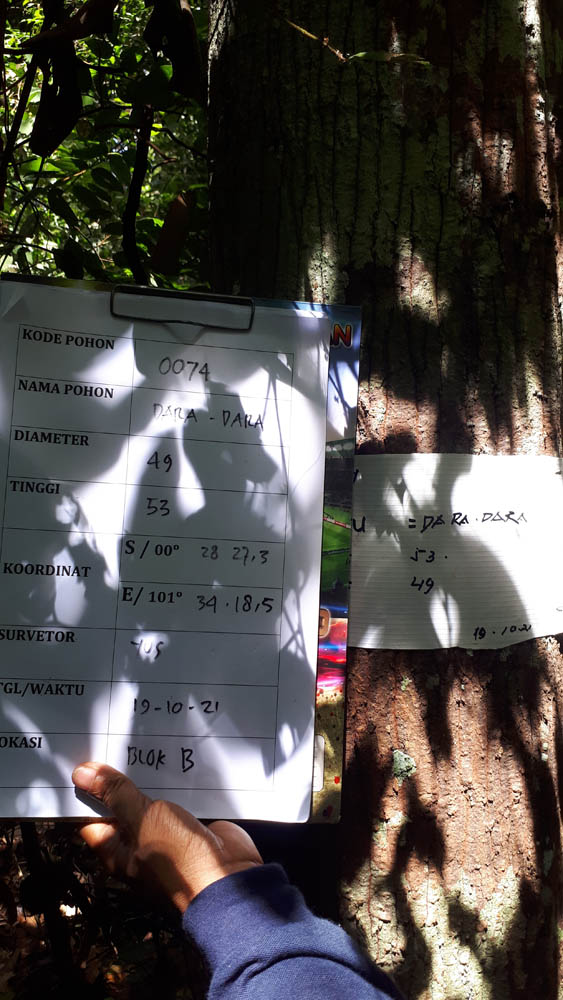 AN
KODE POHON 0074
NAMA POHON DARA - DARA
DIAMETER 49
TINGGI 53
KOORDINAT S / 00° 28 27,3
E/ 101° 34 . 18,5
SURVETOR YUS
TGL/WAKTU 19-10-21
OKASI BLOK B
U = DARA . DARA
53 .
49
19 . 10 - 21